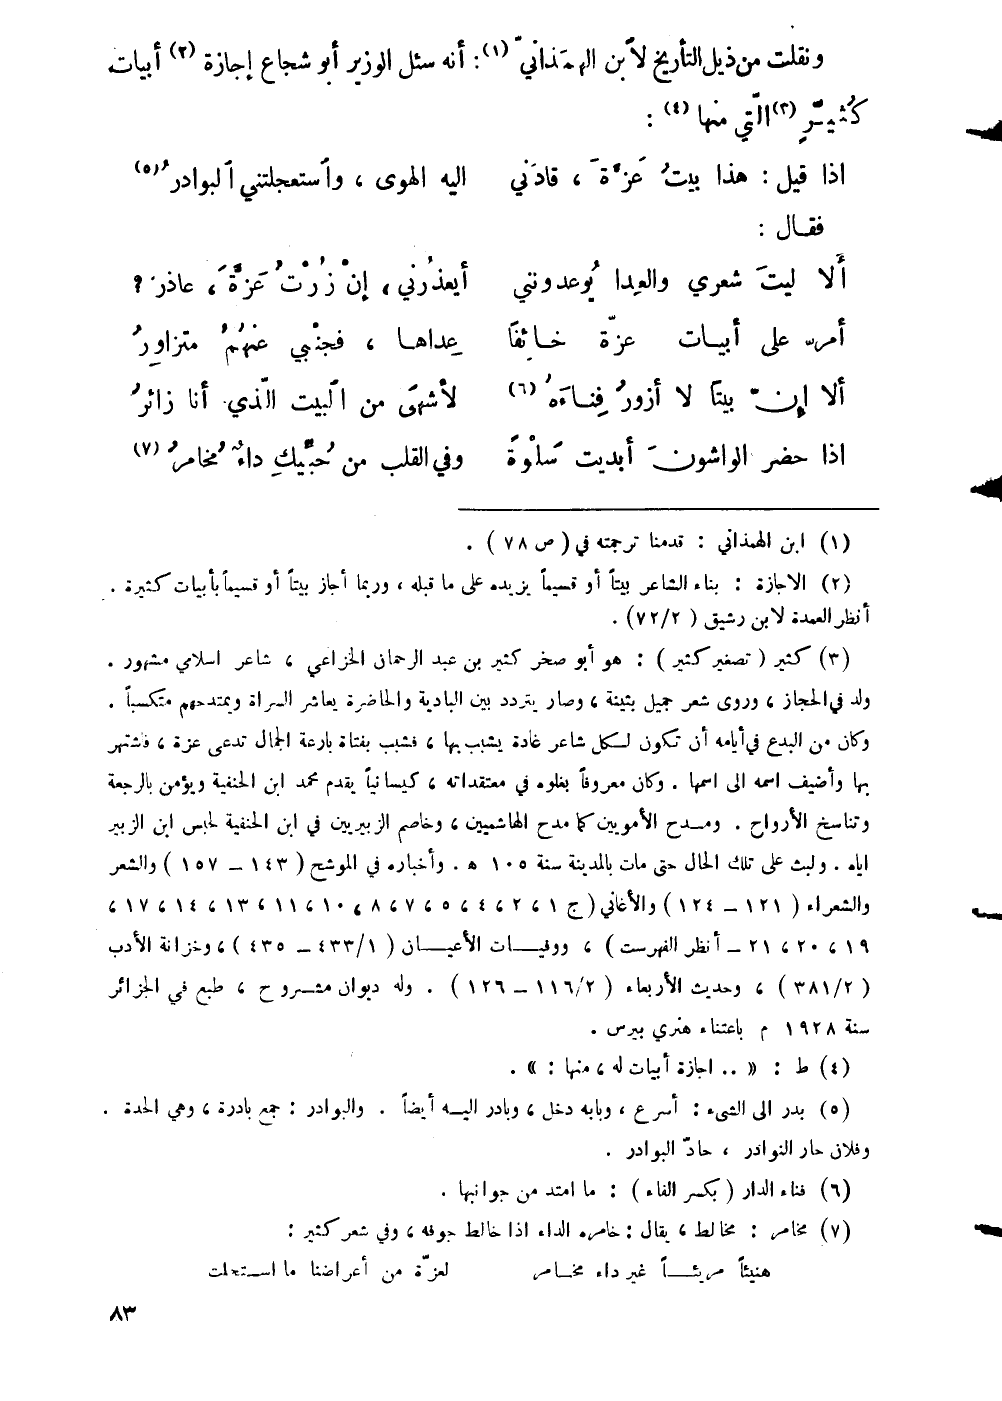 ونقلت من ذيل التأريخ لأبن الهمَذاني (١) : أنه سئل الوزير أبو شجاع إجازة (٢) أبيات
كُثَيِّرٍ (٣) الّتي منها (٤) :
اذا قيل : هذا بيتُ عَزَّةَ ، قادَني اليه الهوى ، وٱستعجلتني ٱلبوادرُ (٥)
فقـال :
أَلا ليتَ شعري والعِدا يُوعدونني أيعذُرني ، إنْ زُرْتُ عَزَّةَ ، عاذرُ ؟
أمرّ على أبيـات عزّة خـائِفًا عِداهـا ، فجنْبي عنْهُمُ متزاورُ
ألا إنّ بيتًا لا أزورُ فِناءَهُ (٦) لأشهَى من ٱلبيت الّذي أنا زائرُ
اذا حضر الواشونَ أبديت سَلْوَةً وفي القلب من حُبَّيكِ داءٌ مُخامرُ (٧)
(١) ابن الهمذاني : قدمنا ترجمته في ( ص ٧٨ ) .
(٢) الاجازة : بناء الشاعر بيتاً أو قسيماً يزيده على ما قبله ، وربما أجاز بيتاً أو قسيماً بأبيات كثيرة .
أنظر العمدة لابن رشيق ( ٧٢/٢ ) .
(٣) كثير ( تصغير كثير ) : هو أبو صخر كثير بن عبد الرحمان الخزاعي ، شاعر اسلامي مشهور .
ولد في الحجاز ، وروى شعر جميل بثينة ، وصار يتردد بين البادية والحاضرة يعاشر السراة ويمتدحهم متكسباً .
وكان من البدع في أيامه أن تكون لـكل شاعر غادة يشبب بها ، فشبب بفتاة بارعة الجمال تدعى عزة ، فاشتهر
بها وأضيف اسمه الى اسمها . وكان معروفاً بغلوه في معتقداته ، كيسانياً يقدم محمد ابن الحنفية ويؤمن بالرجعة
وتناسخ الأرواح . ومـدح الأمويين كما مدح الهاشميين ، وخاصم الزبيريين في ابن الحنفية لحبس ابن الزبير
اياه . ولبث على تلك الحال حتى مات بالمدينة سنة ١٠٥ ﻫ . وأخباره في الموشح ( ١٤٣ ــ ١٥٧ ) والشعر
والشعراء ( ١٢١ ــ ١٢٤ ) والأغاني ( ج ١ ، ٢ ، ٤ ، ٥ ، ٧ ، ٨ ، ١٠ ، ١١ ، ١٣ ، ١٤ ، ١٧ ،
١٩ ، ٢٠ ، ٢١ ــ أنظر الفهرست ) ، ووفيـــات الأعيـــان ( ٤٣٣/١ ــ ٤٣٥ ) ، وخزانة الأدب
( ٣٨١/٢ ) ، وحديث الأربعاء ( ١١٦/٢ ــ ١٢٦ ) . وله ديوان مشـروح ، طبع في الجزائر
سنة ١٩٢٨ م باعتناء هنري بيرس .
(٤) ط : « .. اجازة أبيات له ، منها : » .
(٥) بدر الى الشيء : أسرع ، وبابه دخل ، وبادر اليـه أيضاً . والبوادر : جمع بادرة ، وهي الحدة .
وفلان حار النوادر ، حادّ البوادر .
(٦) فناء الدار ( بكسر الفاء ) : ما امتد من جوانبها .
(٧) مخامر : مخالط ، يقال : خامره الداء اذا خالط جوفه ، وفي شعر كثير :
هنيئاً مريئـــاً غير داء مخـامر لعزّة من أعراضنا ما اسـتحلت
٨٣